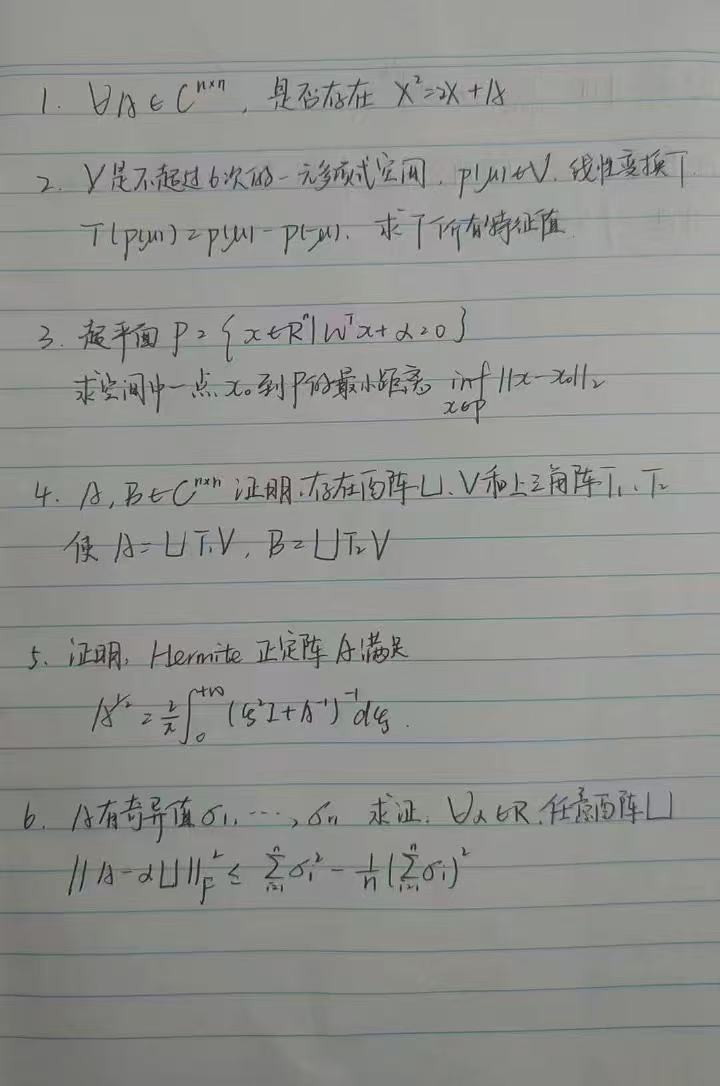 1. ∀A∈C^{n×n}, 是否存在 X²=2X+A
2. V是不超过6次的一元多项式空间. p(μ)∈V. 线性变换T.
T(p(μ))=p(μ)-p(-μ). 求T所有的特征值.
3. 超平面 P={x∈R^n|W^T x+α=0}
求空间中一点x₀到P的最小距离 inf_{x∈P} ||x-x₀||₂
4. A,B∈C^{n×n} 证明.存在酉阵U、V和上三角阵T₁、T₂
使 A=UT₁V, B=UT₂V
5. 证明, Hermite 正定阵A满足
A^{1/2}=\frac{2}{π}∫_0^{+∞}(ξ²I+A^{-1})^{-1}dξ.
6. A有奇异值σ₁,…,σn 求证. ∀α∈R.任意酉阵U
||A-αU||_F^2 ≤ \sum_{i=1}^{n}σ_i^2 - \frac{1}{n}(\sum_{i=1}^{n}σ_i)^2